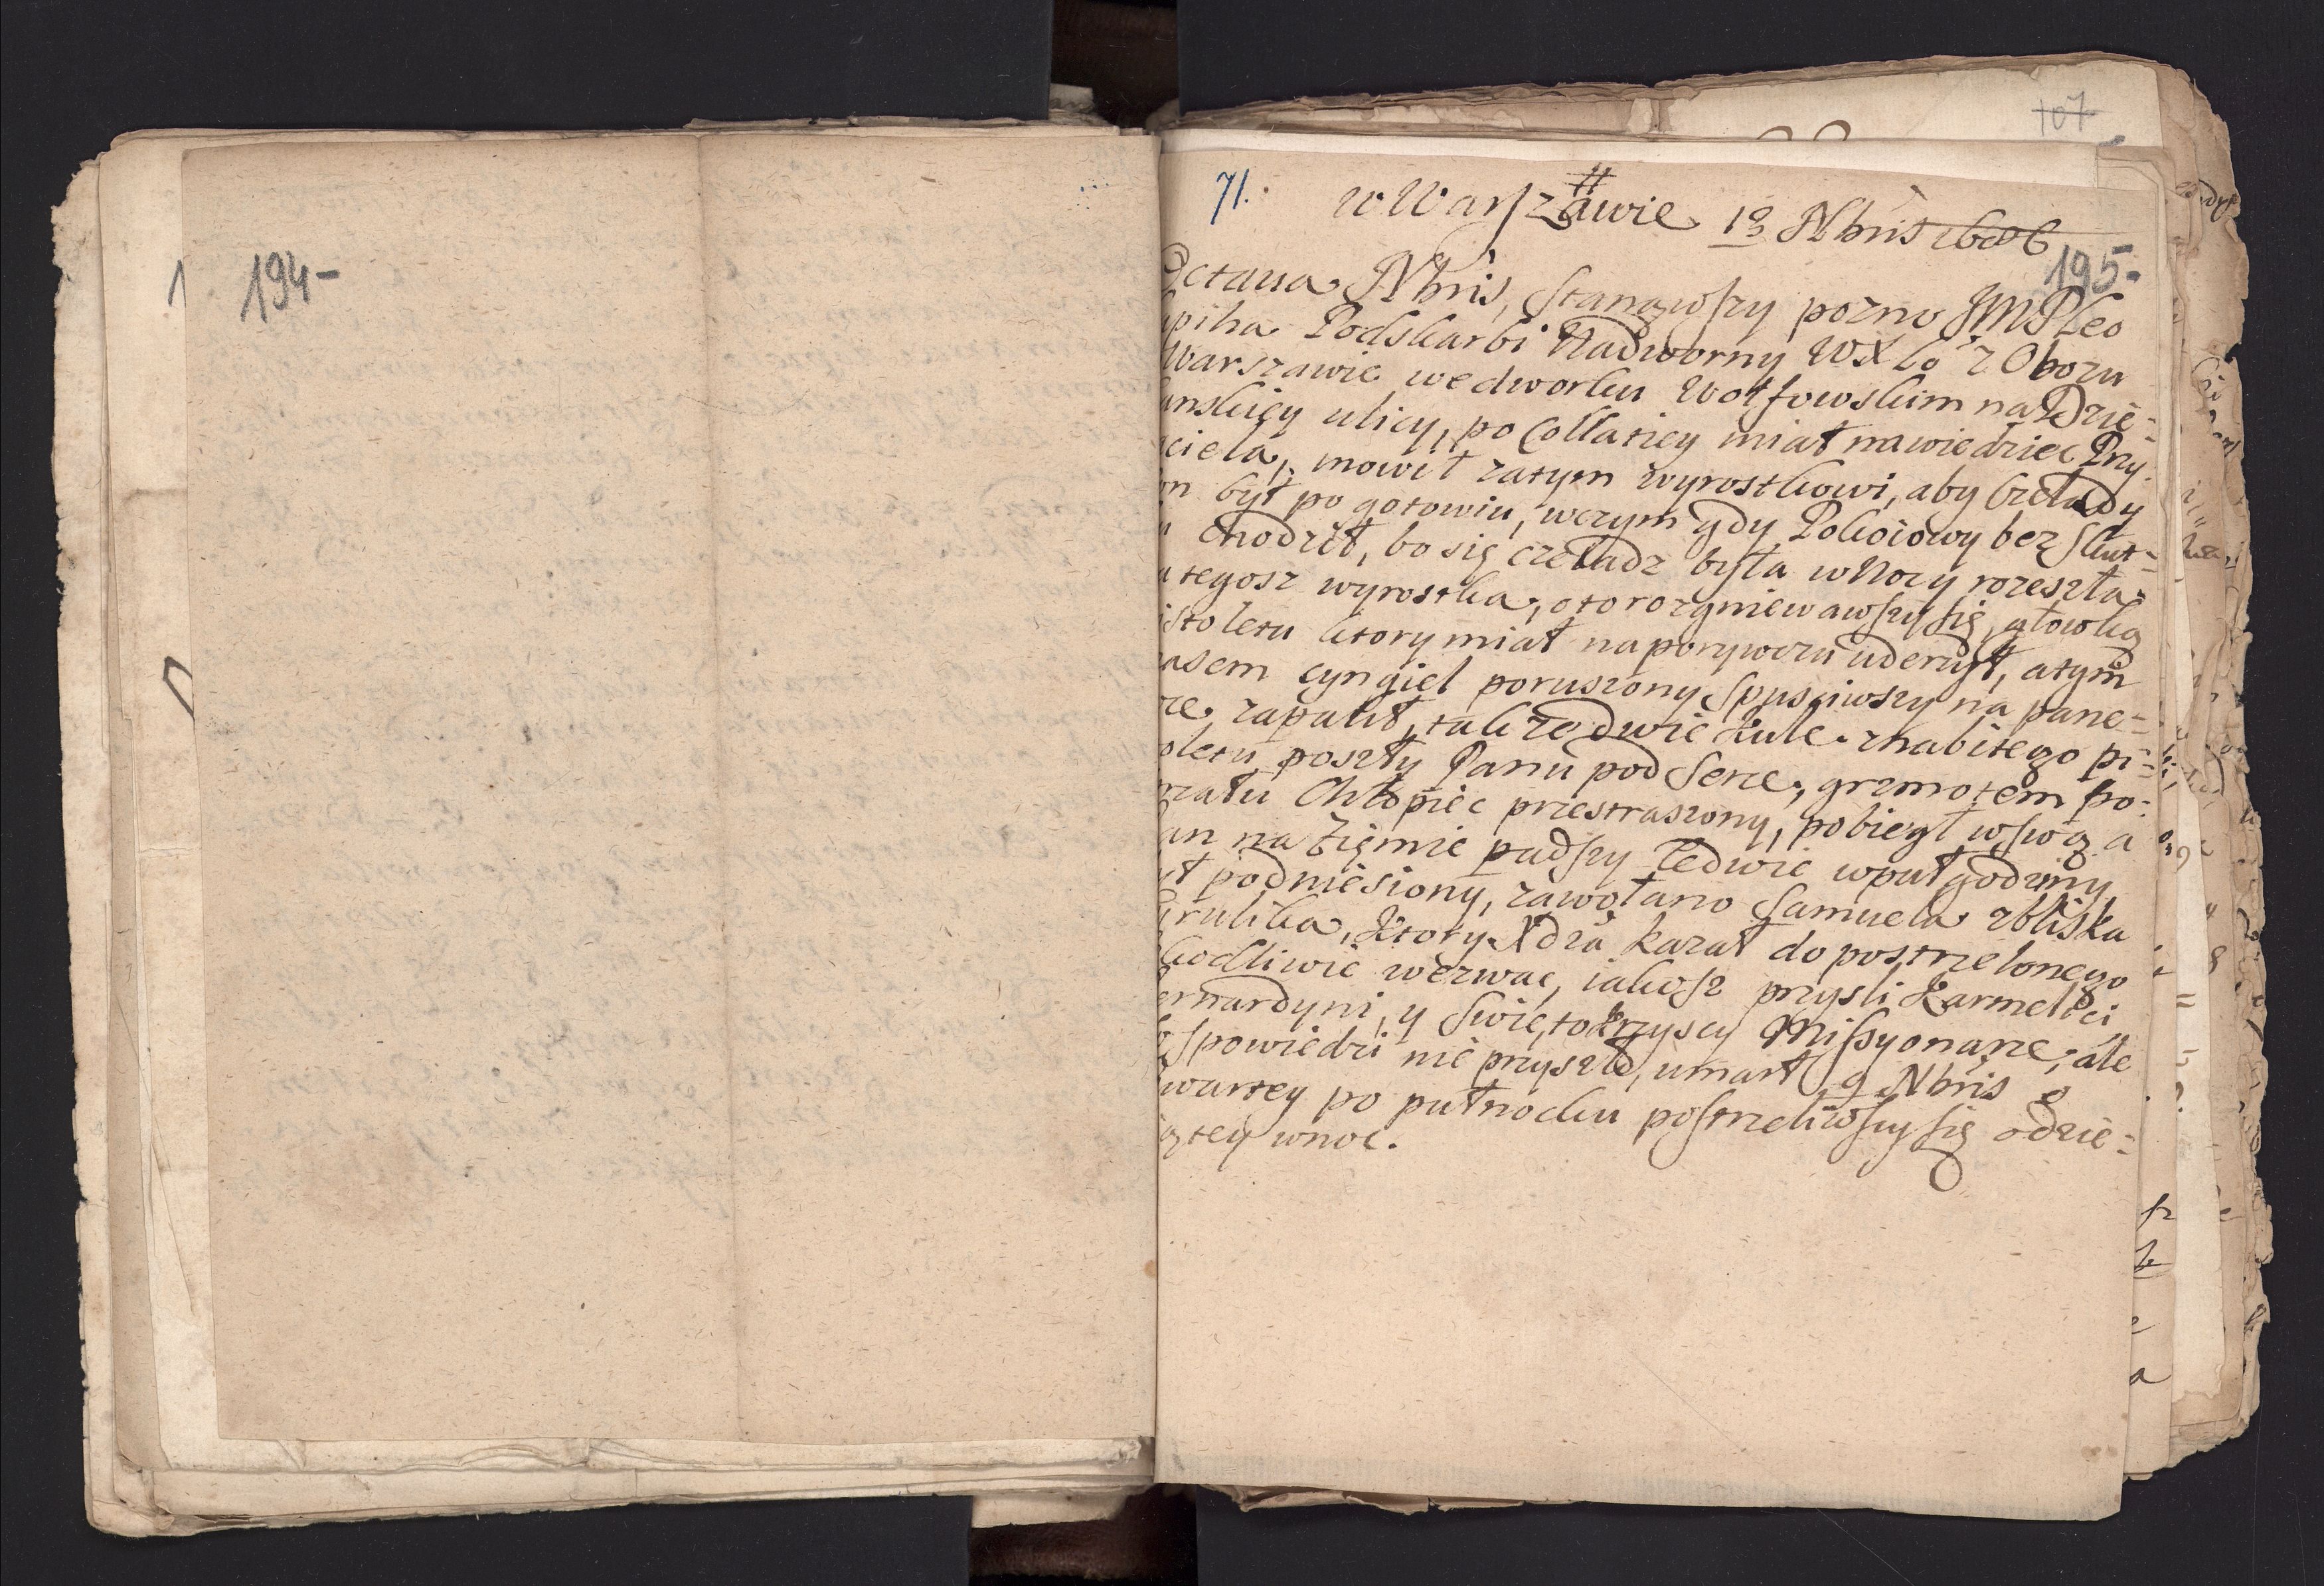 194-
107
71.
w Warszawie 13 Nbris 1686
195-
Octaua Nbris, stanąwszy pozno JMP Leo
apiha Podskarbi Nadworny WXLo z Obozu
Warszawie we dworku Wolfowskim na Dzie=
anskiey ulicy, po Collatiey miał nawiedziec Przy
iciela, mowił zatym wyrostkowi, aby czeladzy
on był po gotowiu, wczym gdy Pokoiowy bez skut=
u chodził, bo się czeladz była w Nocy rozeszła=
a tegosz wyrostka, oto rozgniewawszy się, głowką
istoletu ktory miał na porywczu uderzył, a tym
asem cyngiel poruszony spusciwszy na pane=
re, zapalił, tak że dwie kule z nabitego pi=
oletu poszły Panu pod serce, grzmotem po=
rzału Chłopiec przestraszony, pobiegł w swoą a
an na Ziemie padszy ledwie w puł godziny,
ył podniesiony, zawołano Samuela z bliska
irulika, ktory Xdza kazał do postrzelonego
kodliwie wezwac, iakosz przysli Karmelici
ernardyni, y Swiętokrzyscy Missyonarze, ale
o spowiedzi nie przyszło, umarł 9 Nbris o
wartey po pułnocku postrzeliwszy się o dzie=
iątey w noc.